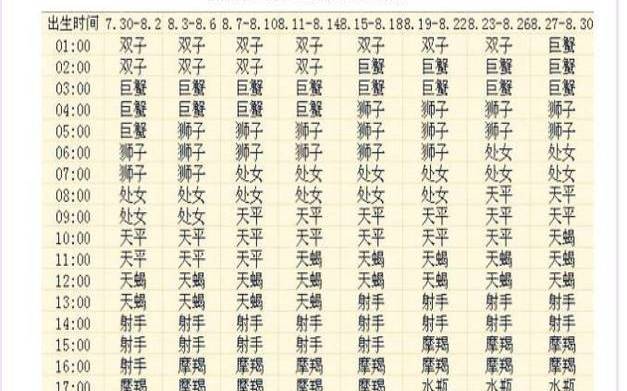 出生时间 7.30-8.2 8.3-8.6 8.7-8.10 8.11-8.14 8.15-8.18 8.19-8.22 8.23-8.26 8.27-8.30
01:00 双子 双子 双子 双子 双子 双子 双子 巨蟹
02:00 双子 双子 双子 双子 巨蟹 巨蟹 巨蟹 巨蟹
03:00 巨蟹 巨蟹 巨蟹 巨蟹 巨蟹 巨蟹 巨蟹 巨蟹
04:00 巨蟹 巨蟹 巨蟹 巨蟹 狮子 狮子 狮子 狮子
05:00 巨蟹 狮子 狮子 狮子 狮子 狮子 狮子 狮子
06:00 狮子 狮子 狮子 狮子 狮子 狮子 处女 处女
07:00 狮子 狮子 处女 处女 处女 处女 处女 处女
08:00 处女 处女 处女 处女 处女 处女 天平 天平
09:00 处女 处女 天平 天平 天平 天平 天平 天平
10:00 天平 天平 天平 天平 天平 天平 天平 天蝎
11:00 天平 天平 天平 天蝎 天蝎 天蝎 天蝎 天蝎
12:00 天蝎 天蝎 天蝎 天蝎 天蝎 天蝎 天蝎 天蝎
13:00 天蝎 天蝎 天蝎 天蝎 射手 射手 射手 射手
14:00 射手 射手 射手 射手 射手 射手 射手 射手
15:00 射手 射手 射手 射手 射手 摩羯 摩羯 摩羯
16:00 射手 摩羯 摩羯 摩羯 摩羯 摩羯 摩羯 摩羯
17:00 摩羯 摩羯 摩羯 摩羯 摩羯 水瓶 水瓶 水瓶